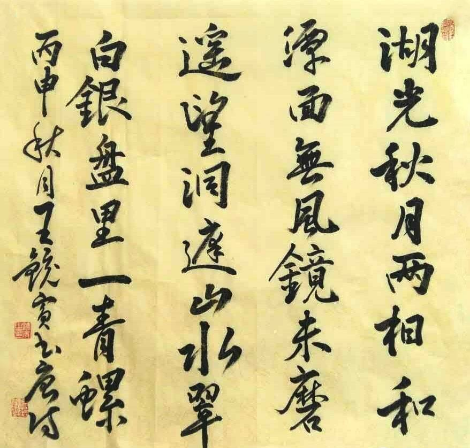 湖光秋月两相和
潭面無風鏡未磨
遥望洞庭山水翠
白銀盤里一青螺
丙申秋月王鏡寅书唐诗